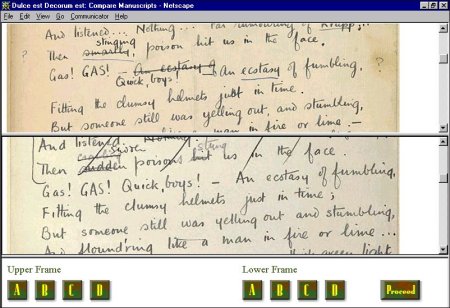 Dulce est Decorum est: Compare Manuscripts - Netscape
File Edit View Go Communicator Help
And listened... Nothing... Far rumouring of Krupp;...
stinging
Then smartly, poison hit us in the face.
Gas! GAS! — An ecstasy of An ecstasy of fumbling,
Quick, boys!
Fitting the clumsy helmets just in time.
But someone still was yelling out and stumbling,
man in fire or lime.—
And listened Nothing
Then sudden poisons hit us in the face.
Gas! GAS! Quick, boys! — An ecstasy of fumbling,
Fitting the clumsy helmets just in time;
But someone still was yelling out and stumbling,
And flound'ring like a man in fire or lime...
green light
Upper Frame
A B C D
Lower Frame
A B C D
Proceed